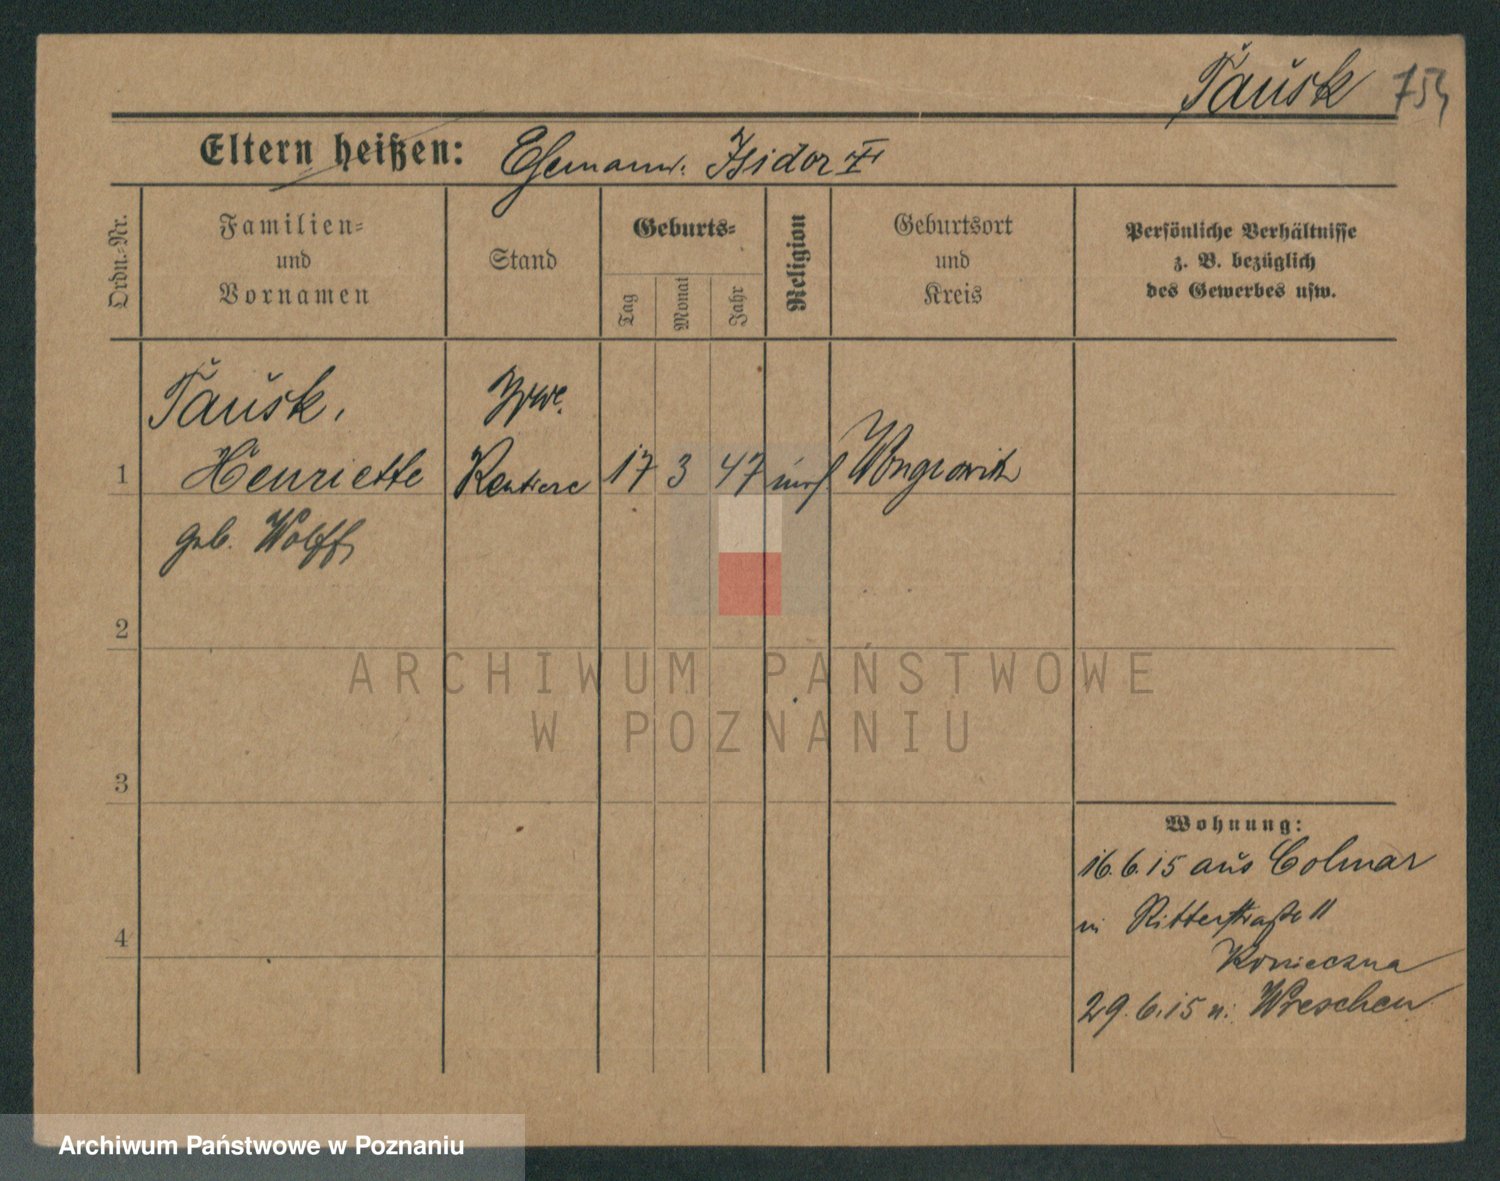 Tausk 754
Eltern heißen: Ehemann. Isidor
Ordn.-Nr.
Familien-
und
Vornamen
Stand
Geburts-
Tag
Monat
Jahr
Religion
Geburtsort
und
Kreis
Persönliche Verhältnisse
z. B. bezüglich
des Gewerbes usw.
Tausk, Wwe.
1 Henriette Rentiere 17 3 47 mos. Wongrowitz
geb. Wolff
2
3
4
Wohnung:
16.6.15 aus Colmar
in Ritterstraße 11
Konieczna
29.6.15 n. Wreschen
ARCHIWUM PAŃSTWOWE
W POZNANIU
Archiwum Państwowe w Poznaniu